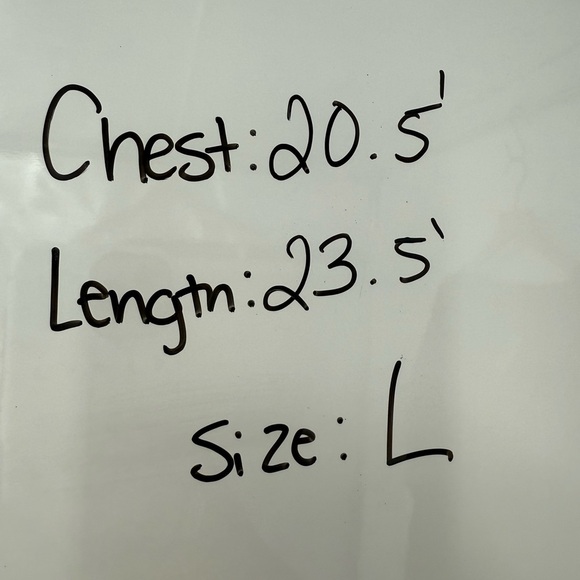 Chest: 20.5'
Length: 23.5'
Size: L